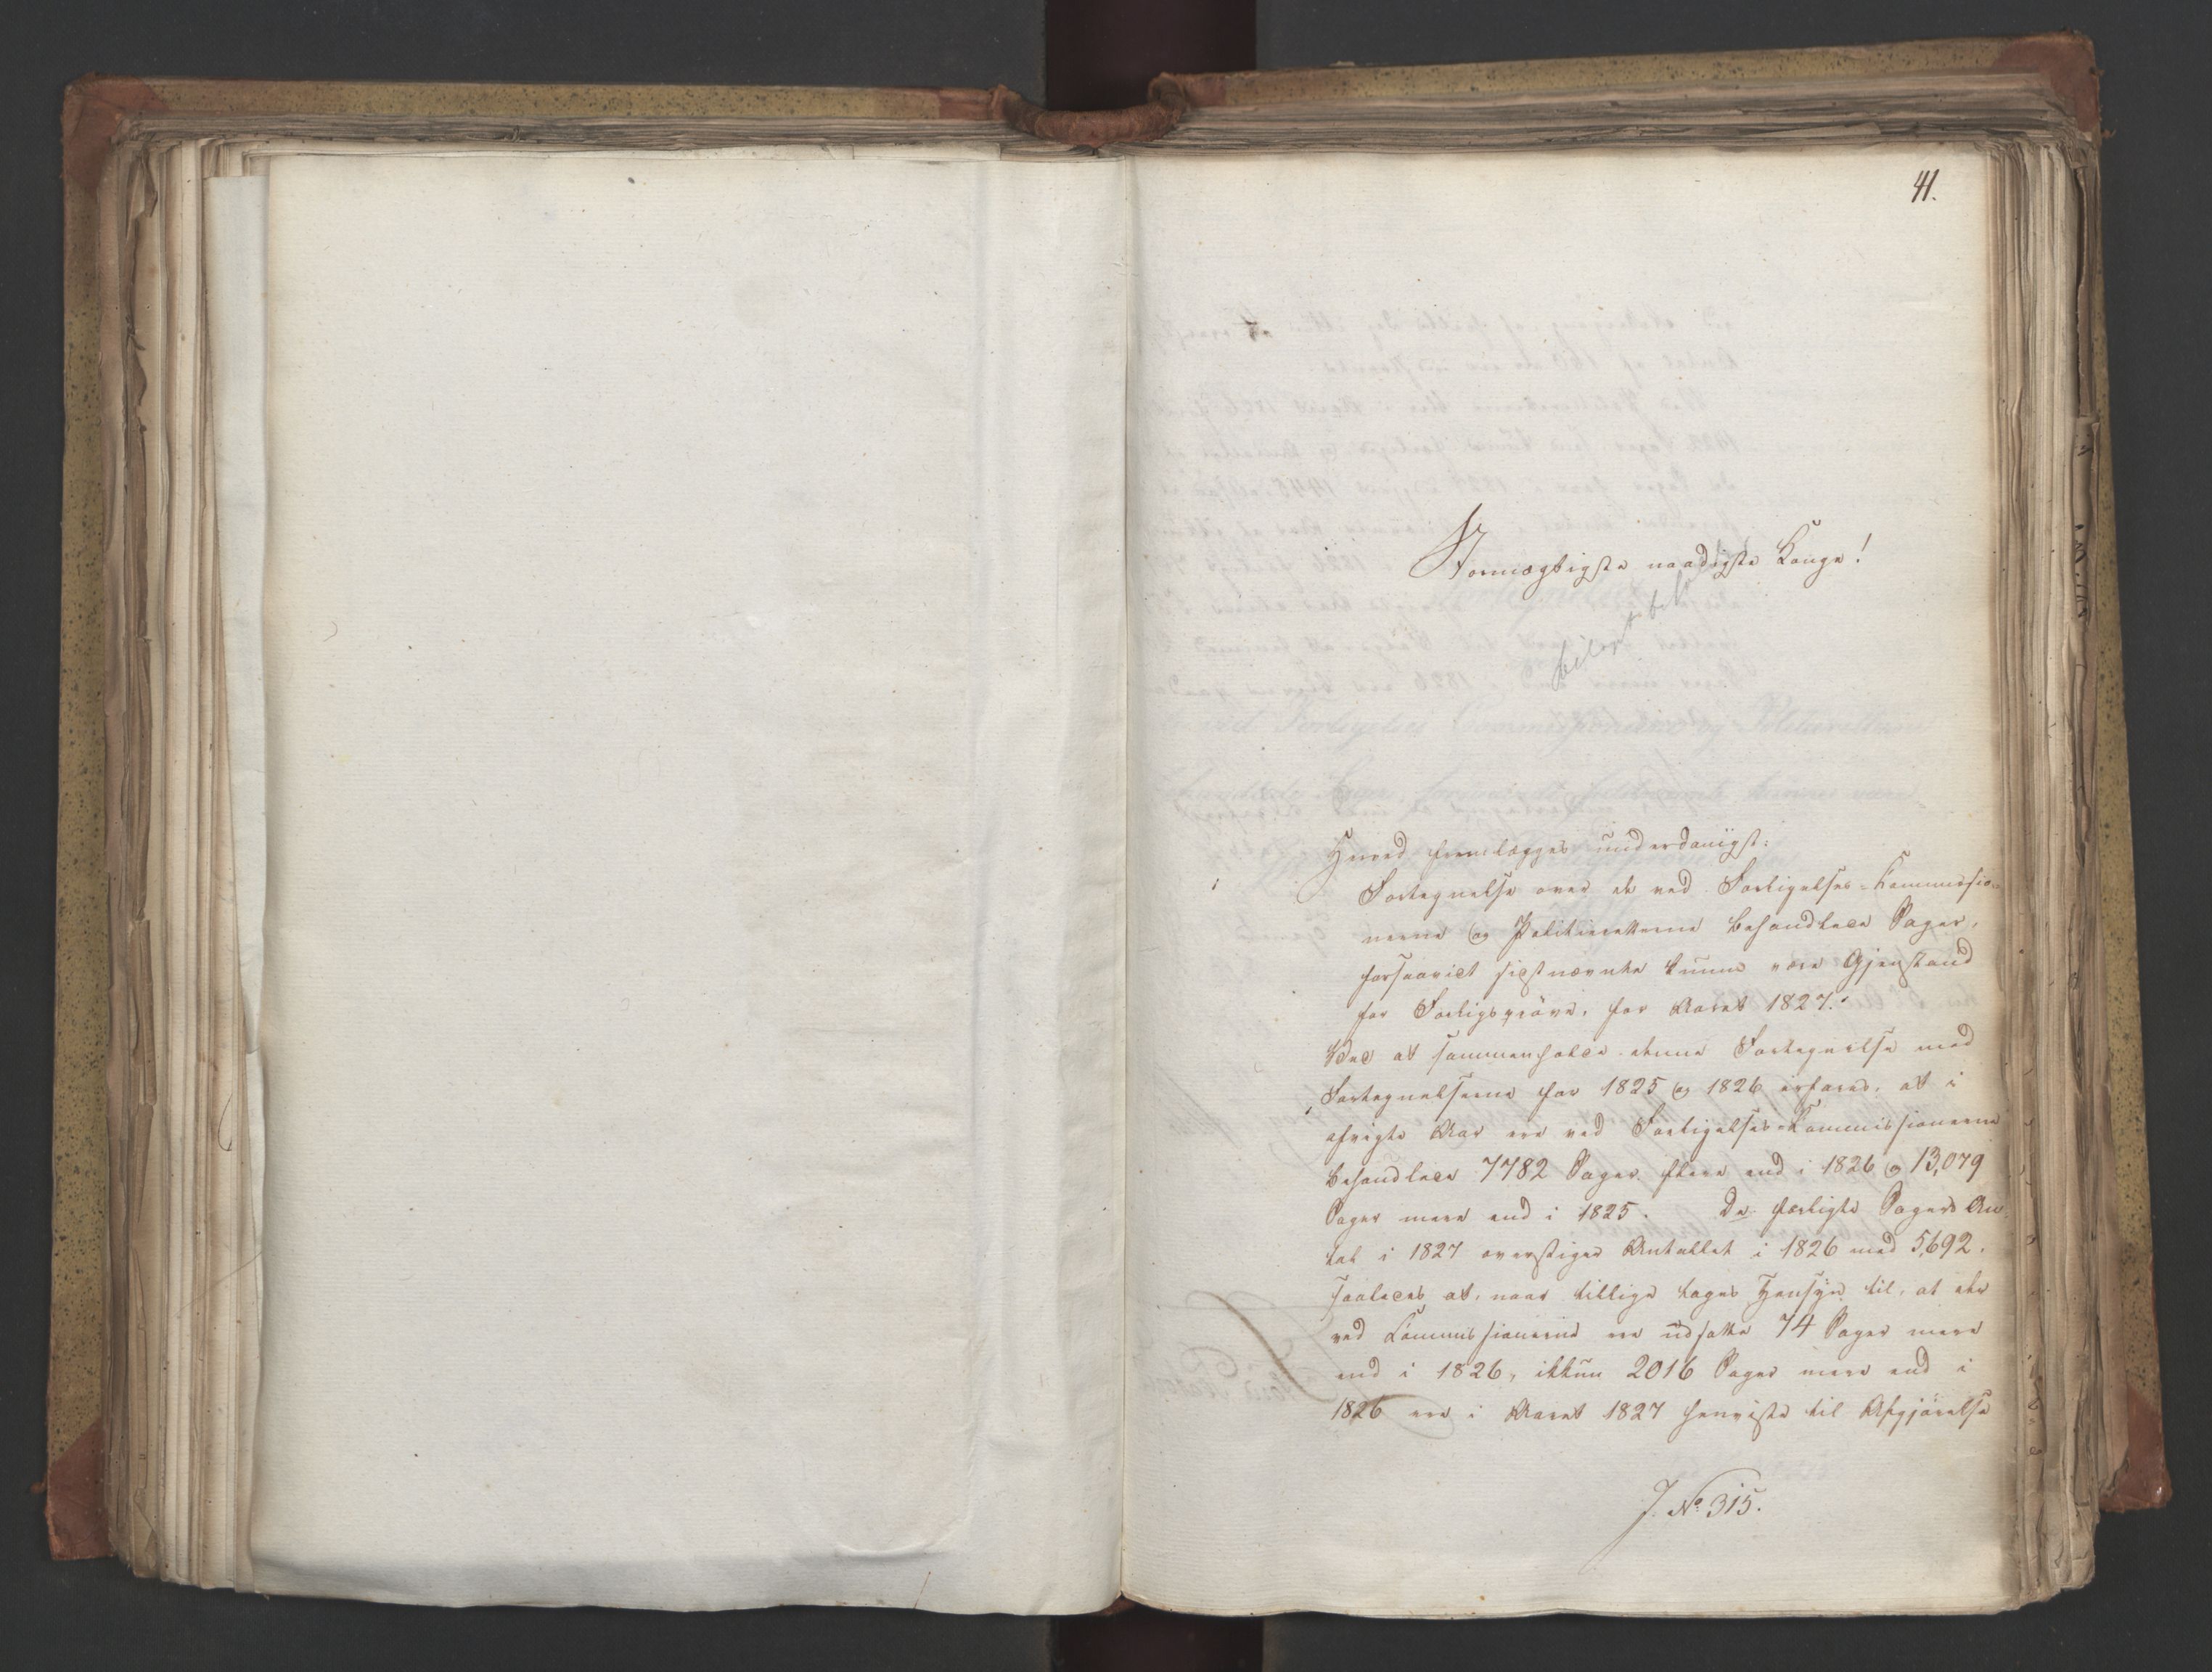 41.
Stormægtigste naadigste Konge!
Herved fremlægges underdanigst:
Fortegnelse over de ved Forligelses-Kommissio-
nerne og Politieretterne behandlede Sager,
forsaavidt sidstnævnte kunne være Gjenstand
for Forligsprøve, for Aaret 1827.
Ved at sammenholde denne Fortegnelse med
Fortegnelserne for 1825 og 1826 erfares, at i
afvigte Aar ere ved Forligelses-Kommissionerne
behandlede 7782 Sager flere end i 1826 og 13,079
Sager mere end i 1825. De forligte Sagers An-
tal i 1827 overstiger Antallet i 1826 med 5,692,
saaledes at, naar tillige tages Hensyn til, at der
ved Kommissionerne ere udsatte 74 Sager mere
end i 1826, ikkun 2016 Sager mere end i
1826 ere i Aaret 1827 henviste til Afgjørelse
J. No. 315.